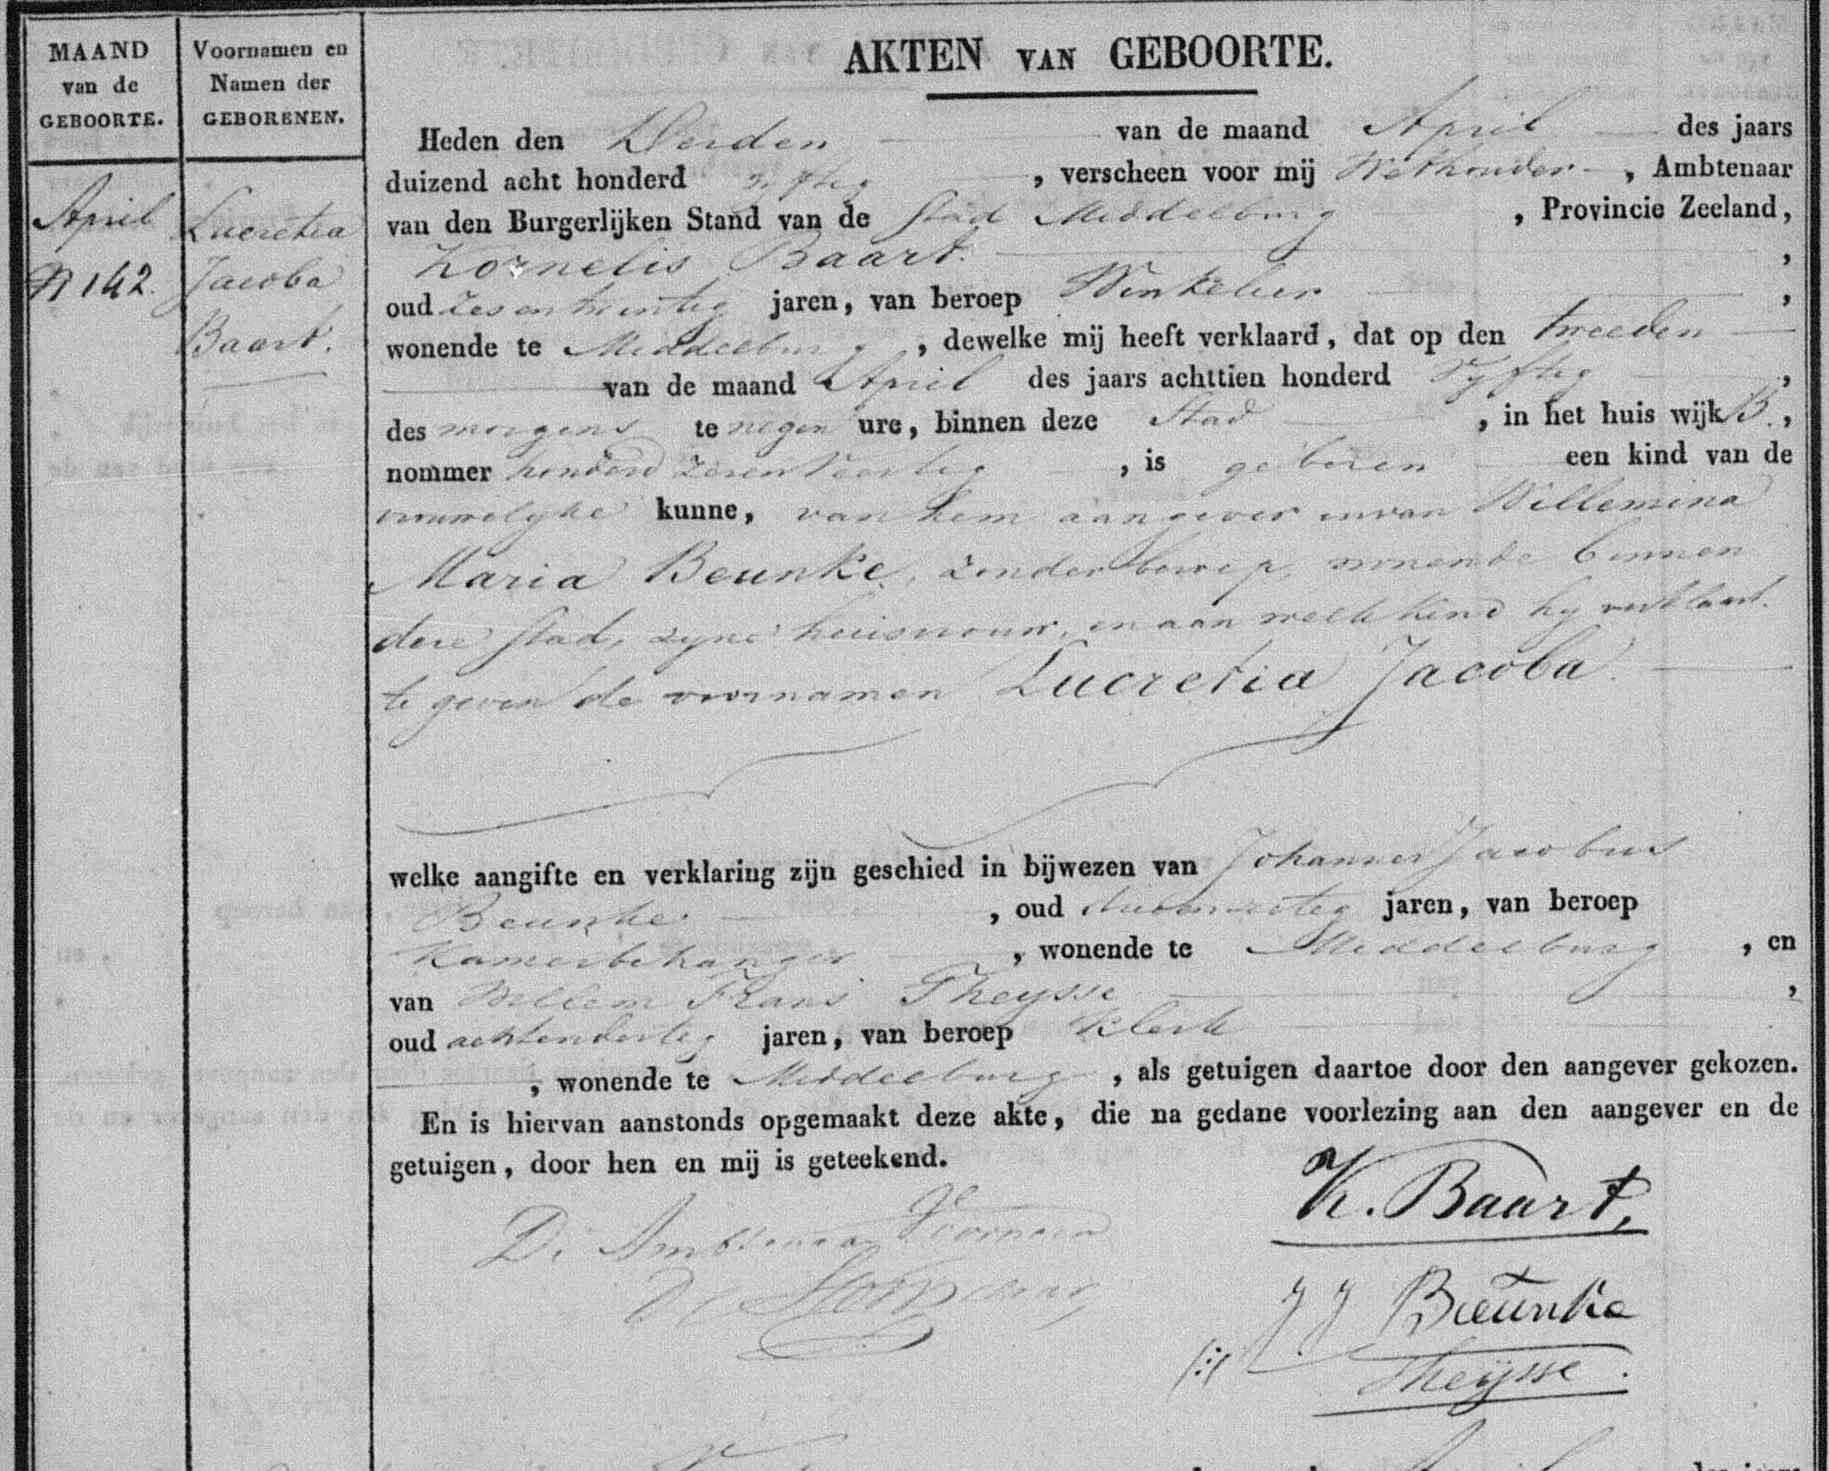 MAAND
van de
GEBOORTE.
Voornamen en
Namen der
GEBORENEN.
April
N 142.
Lucretia
Jacoba
Baart.
AKTEN VAN GEBOORTE.
Heden den Derden van de maand April des jaars
duizend acht honderd vyftig, verscheen voor mij Wethouder, Ambtenaar
van den Burgerlijken Stand van de Stad Middelburg, Provincie Zeeland,
Kornelis Baart.,
oud zesentwintig jaren, van beroep Winkelier,
wonende te Middelburg, dewelke mij heeft verklaard, dat op den tweeden
van de maand April des jaars achttien honderd vyftig,
des morgens te negen ure, binnen deze Stad, in het huis wijk B.,
nommer honderd zevenveertig, is geboren een kind van de
vrouwelyke kunne, van hem aangever en van Willemina
Maria Beunke, zonder beroep, wonende binnen
deze stad, zyne huisvrouw, en aan welk kind hy verklaart
te geven de voornamen Lucretia Jacoba.
welke aangifte en verklaring zijn geschied in bijwezen van Johannes Jacobus
Beunke, oud jaren, van beroep
Kamerbehanger, wonende te Middelburg, en
van Willem Frans Theysse,
oud achtendertig jaren, van beroep Klerk
, wonende te Middelburg, als getuigen daartoe door den aangever gekozen.
En is hiervan aanstonds opgemaakt deze akte, die na gedane voorlezing aan den aangever en de
getuigen, door hen en mij is geteekend.
De Ambtenaar Voornoemd
K. Baart,
J J Beunke
Theysse.